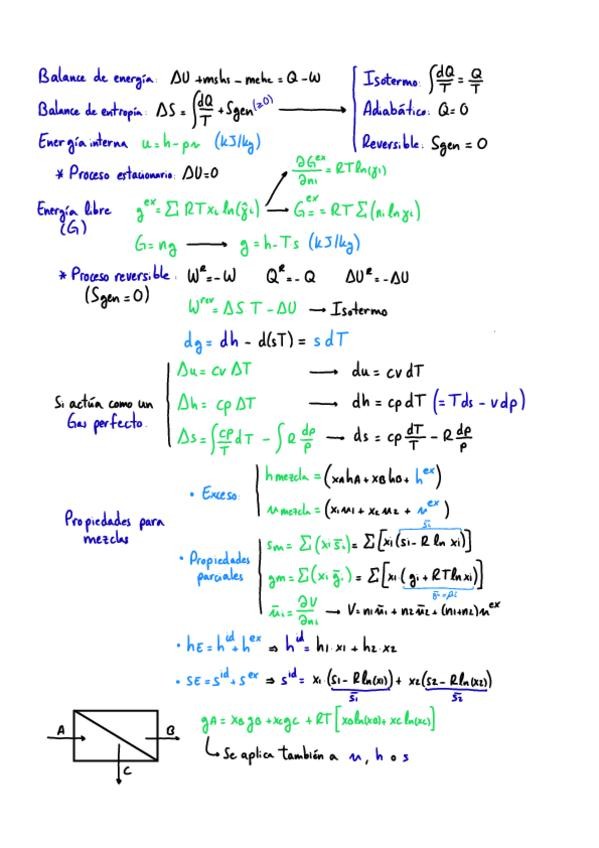 Balance de energía: ΔU + mshs - mehe = Q - W
Balance de entropía: ΔS = ∫dQ/T + Sgen (≥0)
Isotermo: ∫dQ/T = Q/T
Adiabático: Q = 0
Reversible: Sgen = 0
Energía interna u = h - pv (kJ/kg)
* Proceso estacionario: ΔU = 0
∂G^ex/∂ni = RT ln(γi)
Energía libre (G)
g^ex = Σ RT xi ln(γi)
G^ex = RT Σ(ni ln γi)
G = ng → g = h - Ts (kJ/kg)
* Proceso reversible: W^R = -W Q^R = -Q ΔU^R = -ΔU
(Sgen = 0)
W^rev = ΔS T - ΔU → Isotermo
dg = dh - d(sT) = s dT
Si actúa como un
Gas perfecto.
Δu = cv ΔT → du = cv dT
Δh = cp ΔT → dh = cp dT (= Tds - vdp)
Δs = ∫cp/T dT - ∫R dp/p → ds = cp dT/T - R dp/p
Propiedades para
mezclas
• Exceso:
h mezcla = (xA hA + xB hB + h^ex)
v mezcla = (x1 v1 + x2 v2 + v^ex)
• Propiedades
parciales
s̄i
sm = Σ(xi s̄i) = Σ[xi (si - R ln xi)]
gm = Σ(xi ḡi) = Σ[xi (gi + RT ln xi)]
ḡi = μi
v̄i = ∂V/∂ni → V = n1 v̄1 + n2 v̄2 + (n1+n2) v^ex
• hE = h^id + h^ex ⇒ h^id = h1·x1 + h2·x2
• SE = s^id + s^ex ⇒ s^id = x1 (s1 - R ln(x1)) + x2 (s2 - R ln(x2))
s̄1 s̄2
A B C
gA = xB gB + xC gC + RT [xB ln(xB) + xC ln(xC)]
Se aplica también a v, h o s